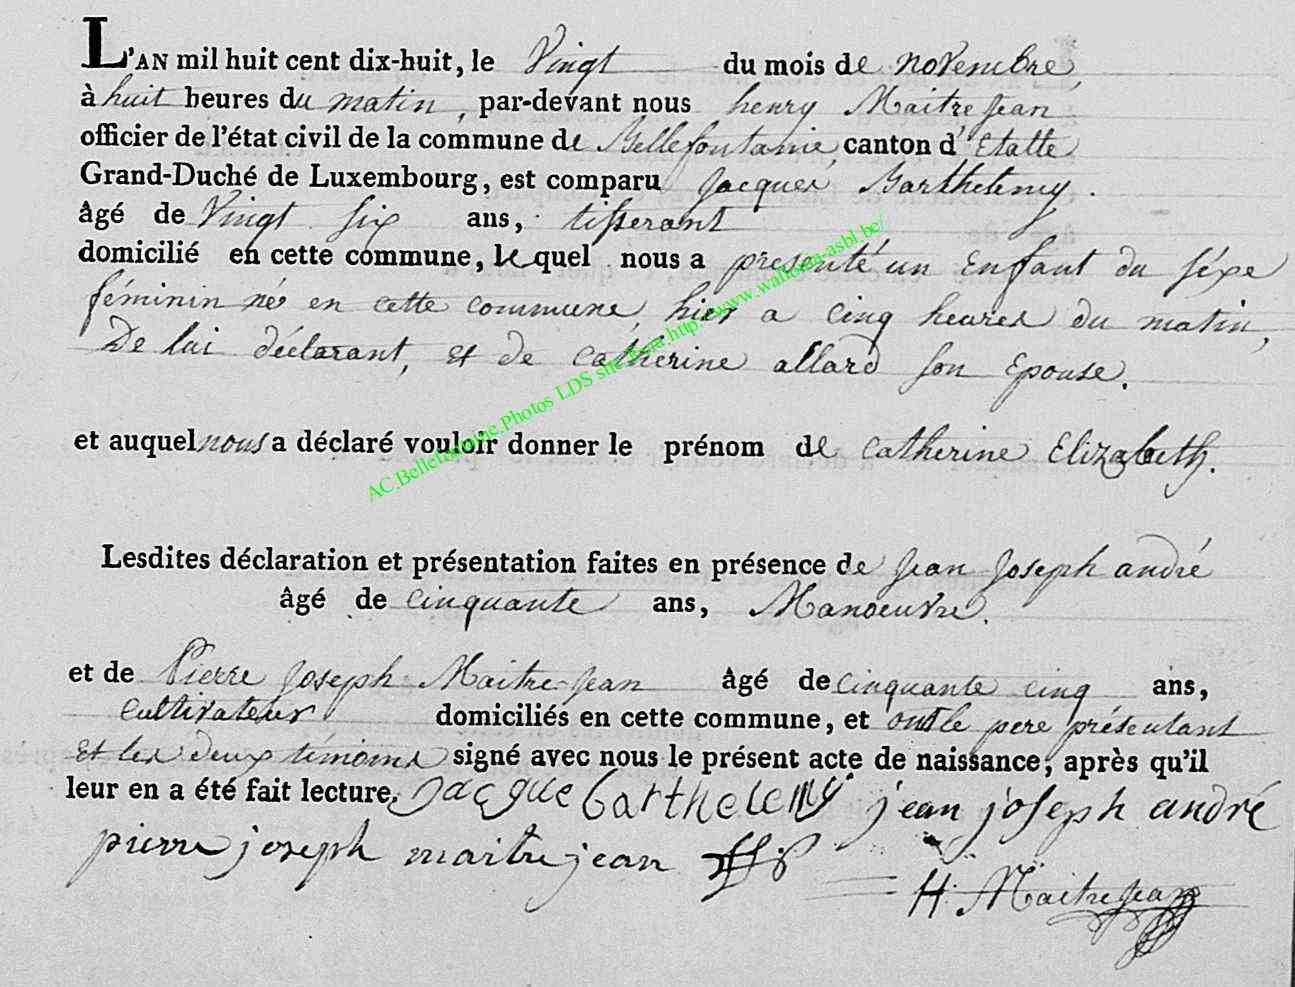 L'AN mil huit cent dix-huit, le Vingt du mois de novembre,
à huit heures du matin, par-devant nous henry Maitrejean
officier de l'état civil de la commune de Bellefontaine, canton d'Etalle
Grand-Duché de Luxembourg, est comparu Jacques Barthelemy.
âgé de Vingt six ans, tisserant
domicilié en cette commune, lequel nous a presenté un Enfant du séxe
féminin né en cette commune, hier a cinq heures du matin,
De lui déclarant, et de catherine allard son Epouse.
et auquel nous a déclaré vouloir donner le prénom de catherine Elizabeth.
Lesdites déclaration et présentation faites en présence de Jean Joseph andré
âgé de cinquante ans, Manoeuvre.
et de Pierre Joseph Maitre-Jean âgé de cinquante cinq ans,
cultivateur domiciliés en cette commune, et ont le pere présentant
et les deux témoins signé avec nous le présent acte de naissance, après qu'il
leur en a été fait lecture, Jacque barthelemy jean joseph andré
pierre joseph maitrejean
H. MaitreJean
AC.Bellefontaine.Photos LDS site http://www.wallonia-asbl.be/